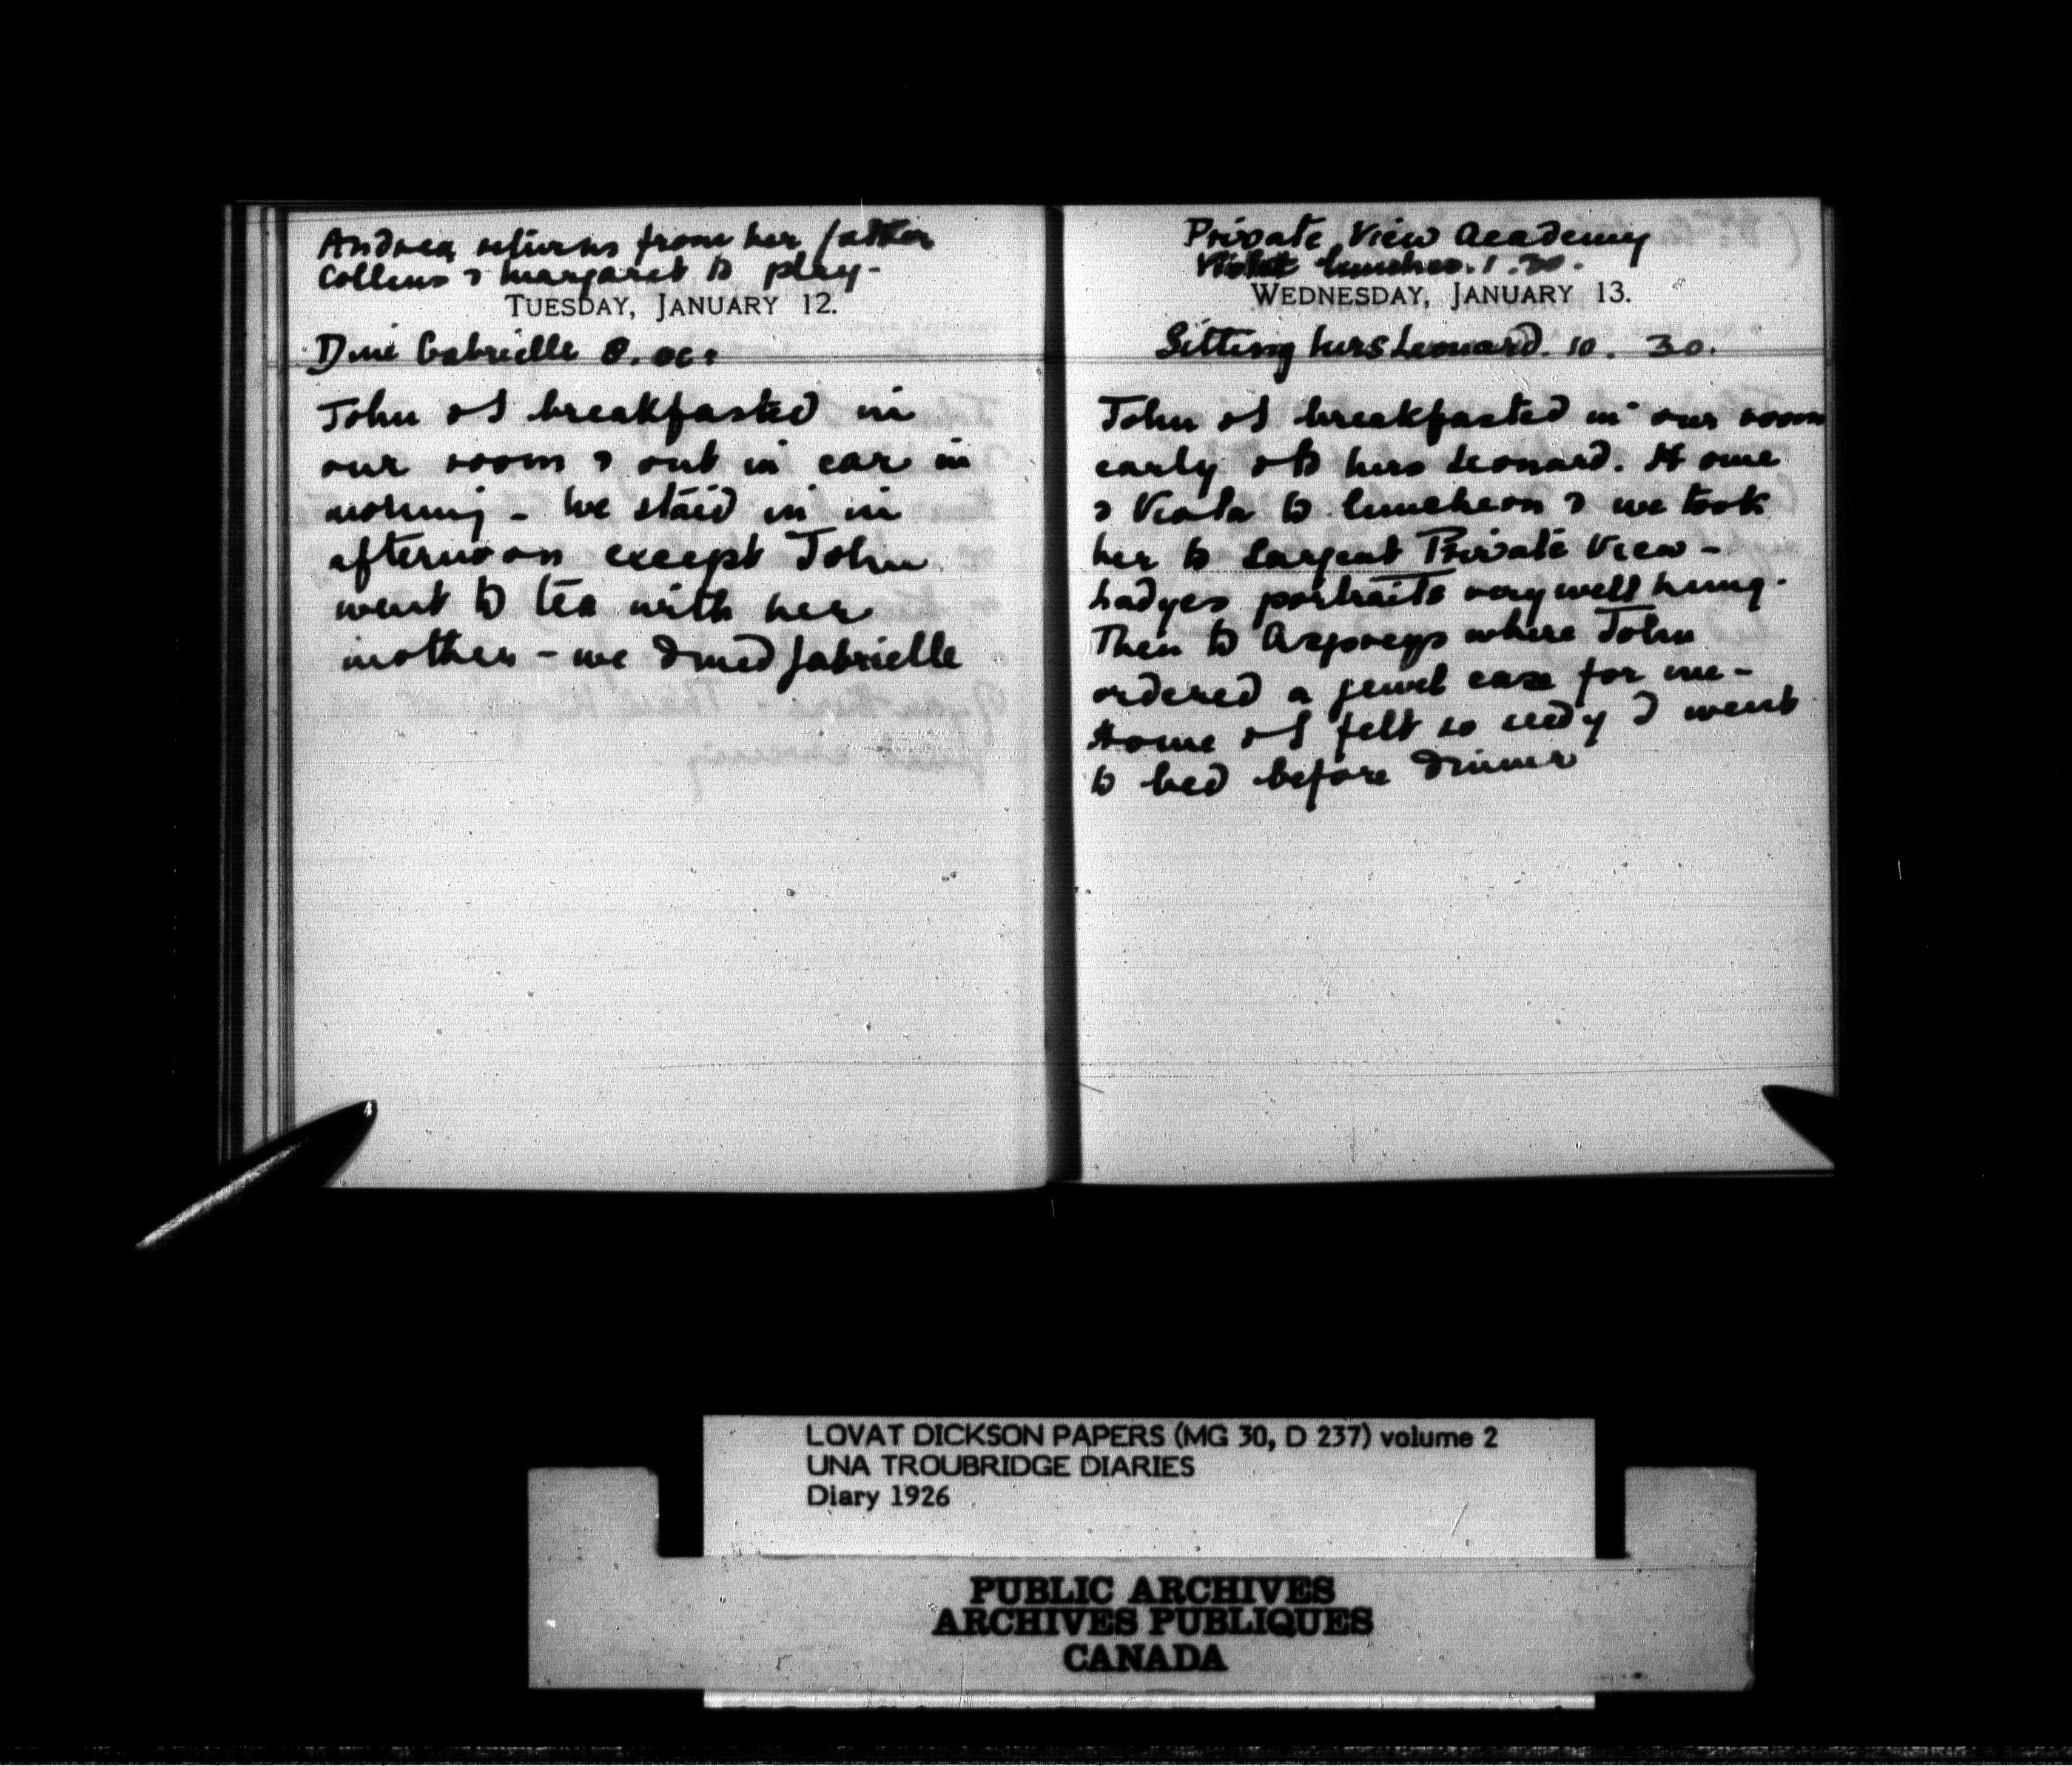 Andrea returns from her father
Collins & Margaret to play -
TUESDAY, JANUARY 12.
Dine Gabrielle 8. oc.
John & I breakfasted in
our room & out in car in
morning - We staid in in
afternoon except John
went to tea with her
mother - we dined Gabrielle
Private View Academy
luncheon. 1.30.
WEDNESDAY, JANUARY 13.
Sitting Mrs Leonard. 10. 30.
John & I breakfasted in our room
early & to Mrs Leonard. Home
& Viola to luncheon & we took
her to Sargent Private View -
Ladyes portraits very well hung.
Then to Aspreys where John
ordered a jewel case for me -
Home & I felt so seedy I went
to bed before dinner
LOVAT DICKSON PAPERS (MG 30, D 237) volume 2
UNA TROUBRIDGE DIARIES
Diary 1926
PUBLIC ARCHIVES
ARCHIVES PUBLIQUES
CANADA